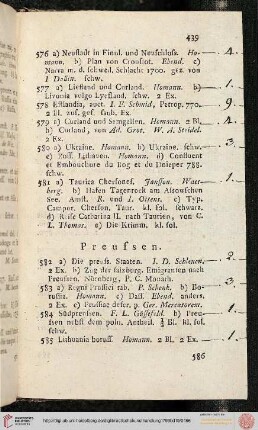 439
576 a) Neustadt in Finnl. und Neuschloss. Ho-
mann. b) Plan von Cronslot. Ebend. c)
Narva m. d. schwed. Schlacht 1700. gez. von
I. Dolin. schw.
577 a) Liefland und Curland. Homann. b)
Livonia vulgo Lyefland. schw. 2 Ex.
578 Esthlandia, auct. I. F. Schmid, Petrop. 770.
2 Bl. zus. gef. saub. Ex.
579 a) Curland und Semgallen. Homann. 2 Bl.
b) Curland, von Ad. Grot. W. A. Stridel.
2 Ex.
580 a) Ukraine. Homann. b) Ukraine. schw.
c) Russ. Lithauen. Homann. d) Confluent
et Embouchure du Bog et de Dnieper 788.
schw.
581 a) Taurica Chersonesf. Janson. Waes-
berg. b) Hafen Tagenrock am Asowschen
See. Amst. R. und I. Ottens. c) Typ.
Campor. Cherson, Taur. kl. fol. schwarz.
d) Reise Catharina II. nach Taurien, von C.
L. Thomas. e) Die Krimm. kl. fol.
schw.
Preussen.
582 a) Die preuss. Staaten. I. D. Schleuen.
2 Ex. b) Zug der salzburg. Emigranten nach
Preussen. Nürnberg, P. C. Monath.
583 a) Regni Prussiae tab. P. Schenk. b) Bo-
russia. Homann. c) Dass. Ebend. anders.
2 Ex. e) Prussiae descr. p. Ger. Mercatorem.
584 Südpreussen. F. L. Güssefeld. b) Preu-
sen nebst dem poln. Antheil. ½ Bl. kl. fol.
schw.
585 Lithuania boruss. Homann. 2 Bl. 2 Ex.
586
4.
1.
9.
4.
3.
1.
3.
1.
1.